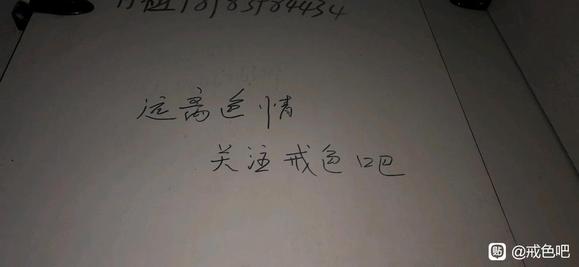 远离色情
关注戒色吧
贴 @戒色吧